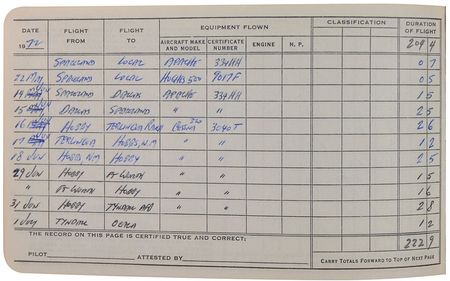 DATE FLIGHT FROM FLIGHT TO EQUIPMENT FLOWN CLASSIFICATION DURATION OF FLIGHT
1972 AIRCRAFT MAKE AND MODEL CERTIFICATE NUMBER ENGINE N. P. 209 4
SPACELAND LOCAL APACHE 334HH 0 7
22 MAY SPACELAND LOCAL HUGHES 500 9017F 0 5
14 SPACELAND DALLAS APACHE 334HH 1 5
15 DALLAS SPACELAND " " 2 5
16 HOBBY TERLINGUA RANCH CESSNA 3040T 2 6
17 TERLINGUA HOBBS, N.M " " 1 2
18 JUN HOBBS, N.M HOBBY " " 2 5
29 JUN HOBBY FT WORTH " " 1 5
" FT WORTH HOBBY " " 1 6
31 JUN HOBBY TYNDALL AFB " " 2 8
1 JULY TYNDALL OCALA 1 2
THE RECORD ON THIS PAGE IS CERTIFIED TRUE AND CORRECT: 222 9
PILOT ATTESTED BY CARRY TOTALS FORWARD TO TOP OF NEXT PAGE